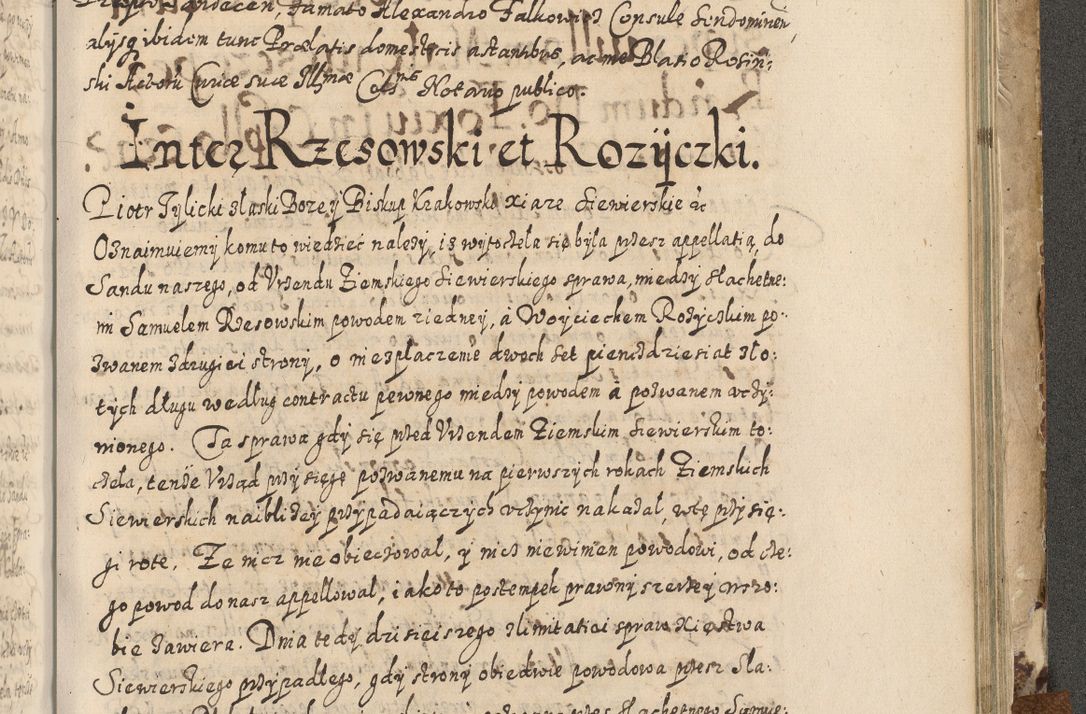 Famato Alexandro Falkowicz Consule Sendominen,
alysq ibidem tunc Prælatis domesticis astantibus, ac me Blasio Rosin:
ski Actorũ Curiæ suæ Illmæ Cels Notario publico.
Inter Rzesowski et Rozÿczki.
Piotr Tylicki z łaski Bozey Biskup Krakowski xiaze Siewierskie &c
Oznaimuiemy komu to wiedziec nalezy, iz wytoczeła się była przez appellatią do
Sandu naszego, od Vrzendu Ziemskiego Siewierskiego sprawa, miedzy slachetne:
mi Samuelem Rzesowskim powodem z iedney, á Woyciechem Rozyczkim po:
zwanem z drugiei strony, o niezpłaczenie dwoch set piencdziesiat zło:
tych długu według contractu pewnego miedzy powodem á pozwanem vczy:
nionego. Ta sprawa gdy się przed Vrzendem Ziemskim Siewierskim to:
czeła, tenże Vrząd przysięgę pozwanemu na pierwszych rokach Ziemskich
Siewierskich naiblizey przypadaiączych vczynic nakazał, w tę przysię:
gi rotę. Ze nicz nie obieczował, y nicz niewinien powodowi, od cze:
go powod do nasz appellował, iako to postempek prawny szerzey w szo:
bie zawiera. Dnia tedy dzisieiszego z limitatiei spraw Xięstwa
Siewierskiego przypadłego, gdy strony obiedwie powodowa przez Sla: